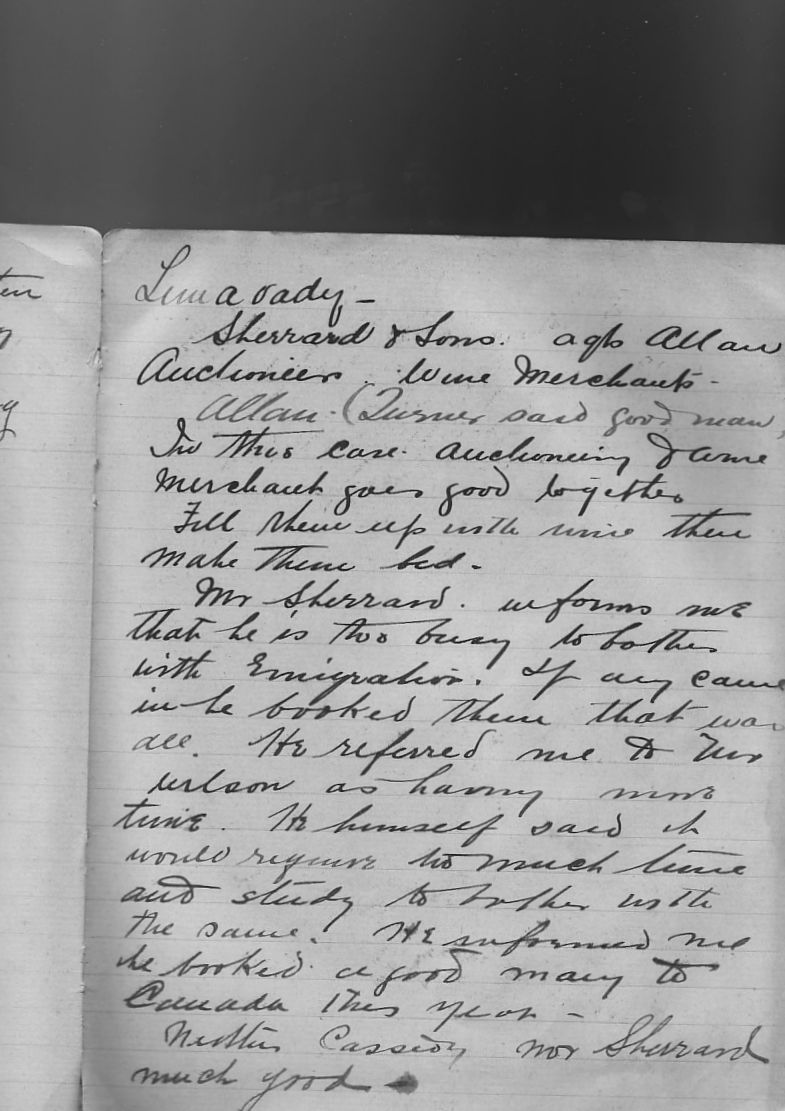 Limavady -
Sherrard & Sons. agts Allan
Auctioneers. Wine Merchants -
Allan - (Turner said good man,
In this case auctioneering & wine
Merchant goes good together
Fill them up with wine then
make them bid.
Mr Sherrard. informs me
that he is too busy to bother
with Emigration. If any came
in he booked them that was
all. He referred me to Mr
Wilson as having more
time. He himself said it
would require to much time
and study to bother with
the same. He informed me
he booked a good many to
Canada this year -
Neither Cassidy nor Sherrard
much good -